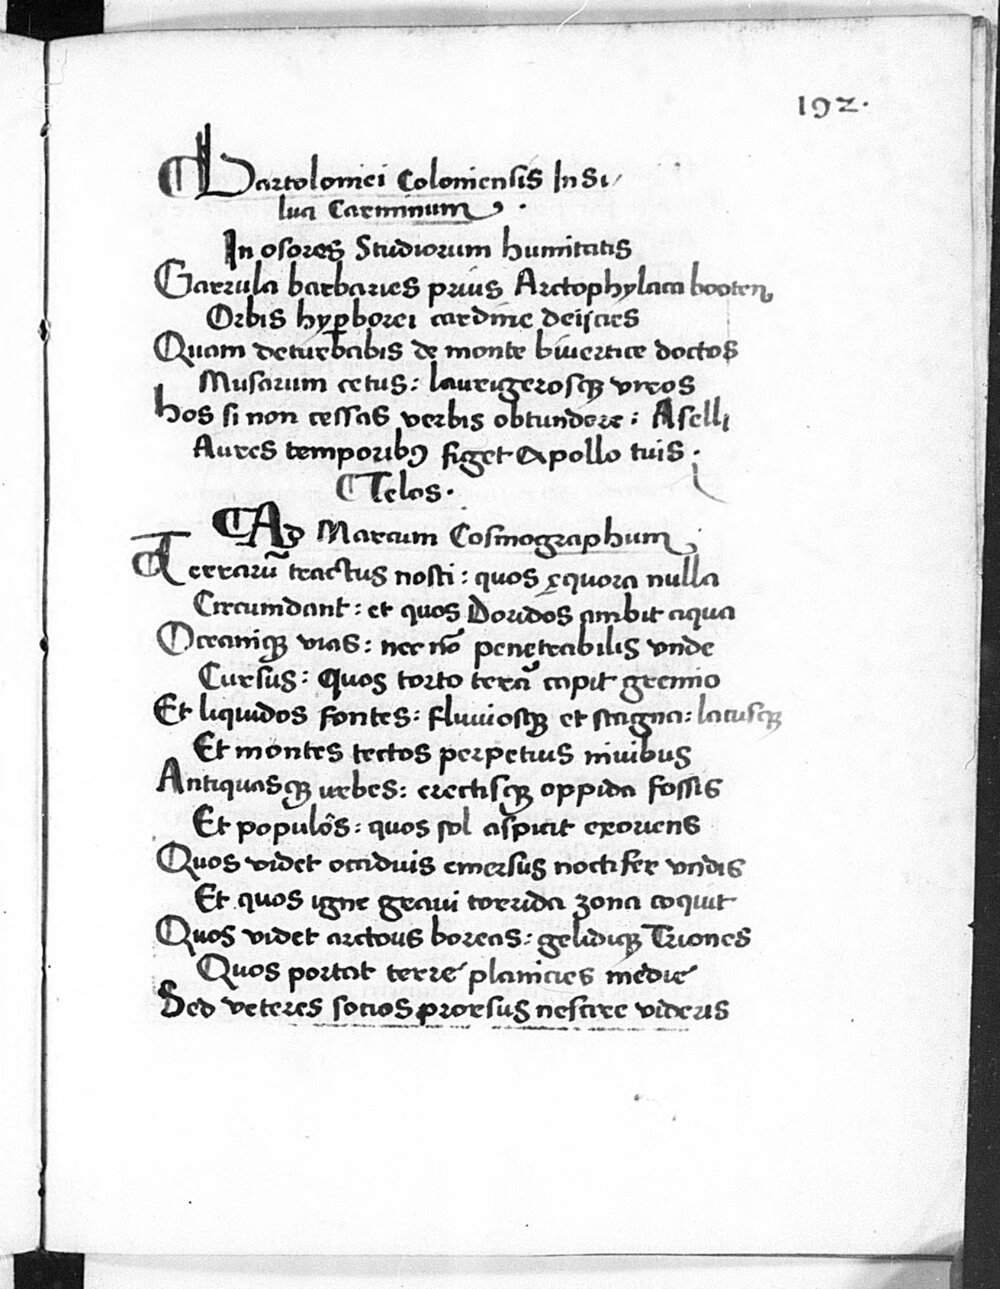 192.
Bartolomei Coloniensis In Si/
lua Carminum .
In osores Studiorum humitatis
Garrula barbaries prius Arctophylaca booten
Orbis hyꝑborei cardine deijcies
Quam deturbabis de monte biuertice doctos
Musarum cetus: laurigerosqꝫ vreos
hos si non cessas verbis obtundere: Aselli
Aures temporibꝰ figet Apollo tuis.
Telos.
Ad Marcum Cosmographum
Terrarū tractus nosti: quos ęquora nulla
Circumdant: et quos Doridos ambit aqua
Oceaniqꝫ vias: nec nō penetrabilis vnde
Cursus: Quos torto terrā capit gremio
Et liquidos fontes: fluuiosqꝫ et stagna: lacusqꝫ
Et montes tectos perpetuis niuibus
Antiquasqꝫ urbes: erectisqꝫ oppida fossis
Et populôs: quos sol aspicit exoriens
Quos videt occiduis emersus noctifer vndis
Et quos igne graui torrida zona coquit
Quos videt arctous boreas: gelidiqꝫ Triones
Quos portat terre planicies medie
Sed veteres socios prorsus nescire videris